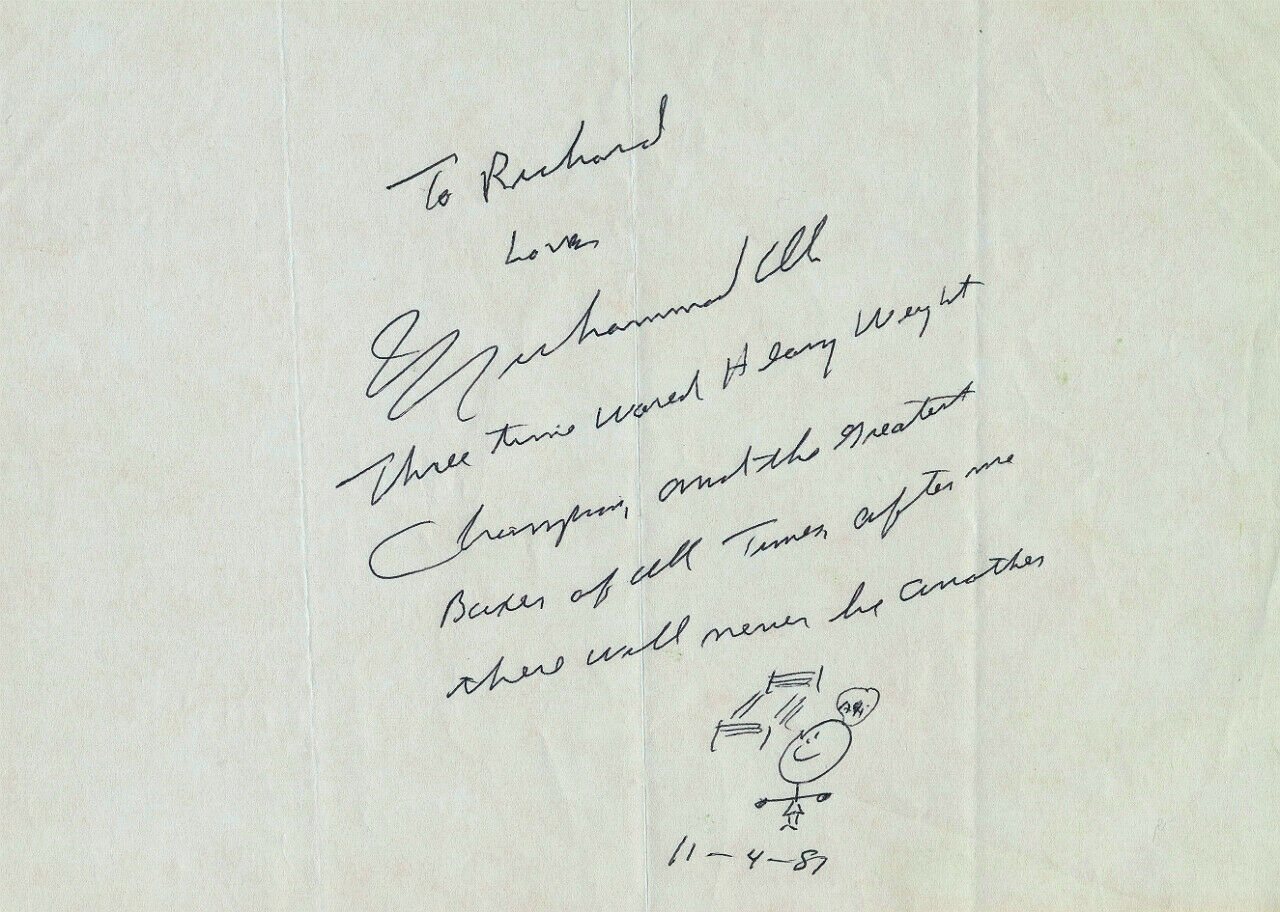 To Richard
Love
Muhammad Ali
Three time World Heavy Weight
Champion, and the greatest
Boxer of all Times, after me
there will never be another
11-4-87